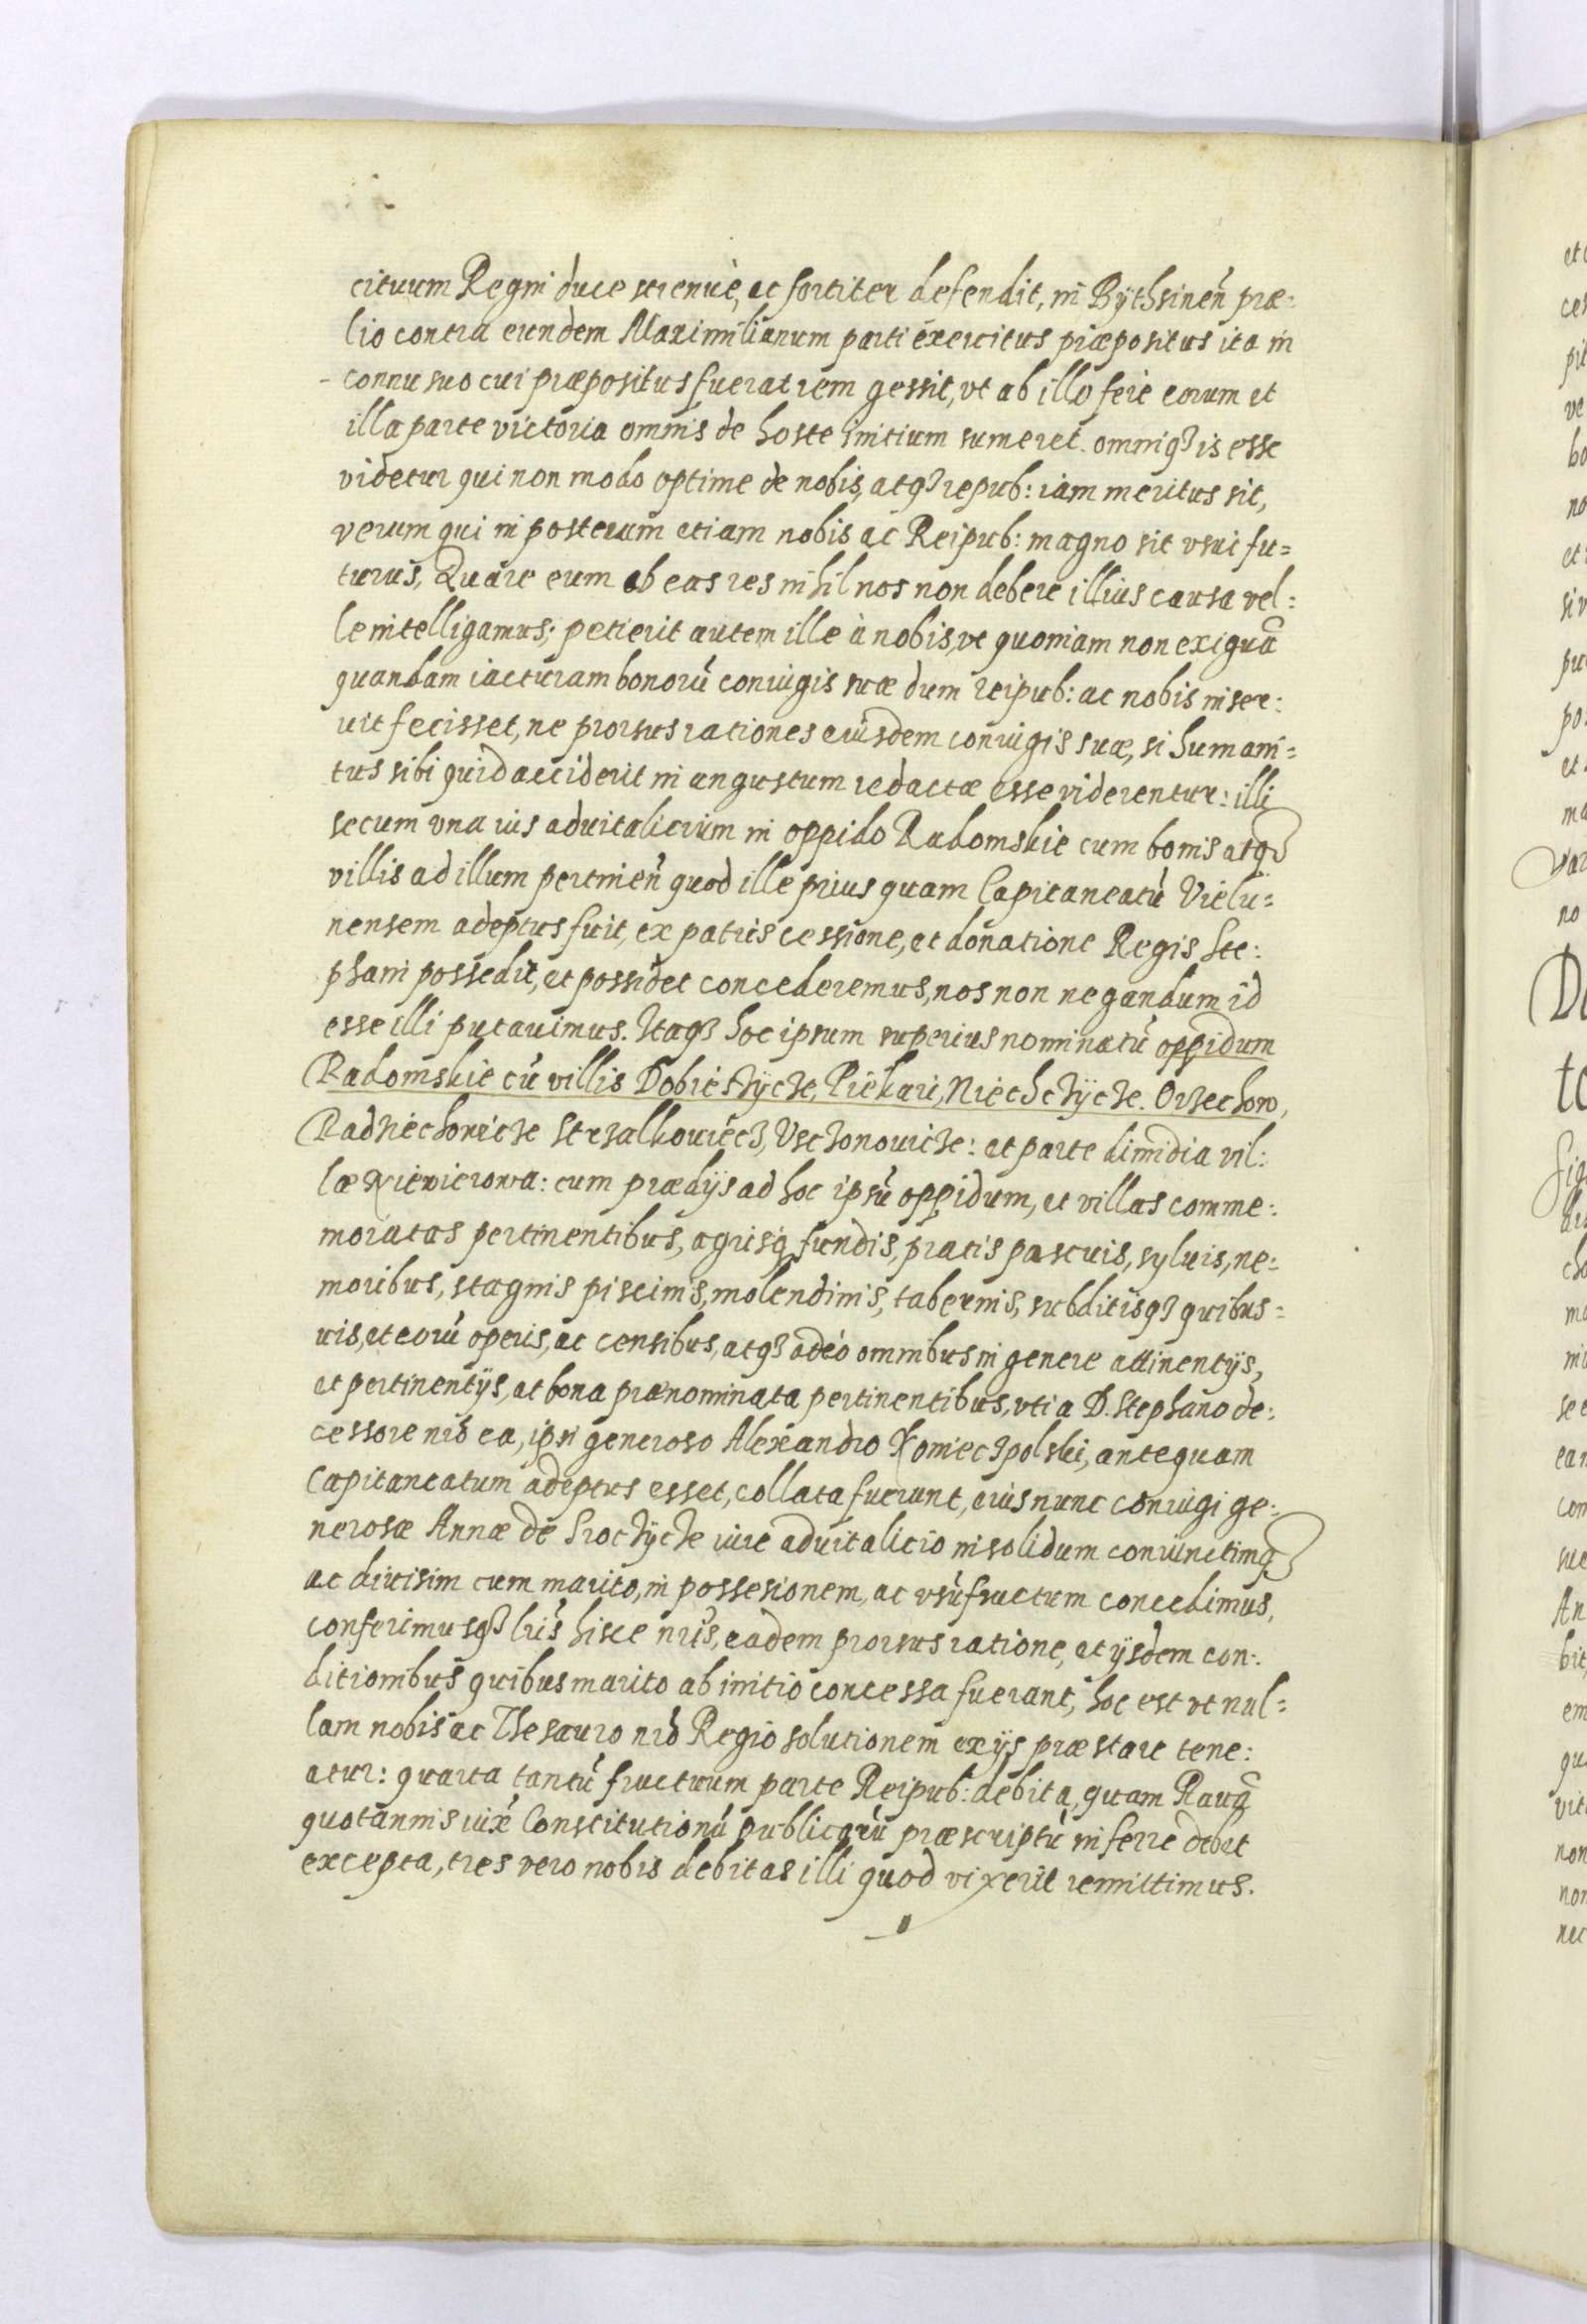 cituum Regni duce strenuè, ac fortiter defendit, in Bÿthsinen̄ præ:
lio contra eundem Maximilianum parti exercitus præpositus ita in
cornu suo cui præpositus fuerat rem gessit, vt ab illo ferè eorum et
illa parte victoria omnis de hoste initium sumeret. omniq3 is esse
videtur qui non modo optime de nobis, atq3 repub: iam meritus sit,
verum qui in posterum etiam nobis ac Reipub: magno sit vsui fu=
turus, Quare eum ob eas res nihil nos non debere illius causa vel:
le intelligamus; petierit autem ille à nobis, vt quoniam non exiguā
quandam iacturam bonorū coniugis suæ dum reipub: ac nobis inser:
uit fecisset, ne prorsus rationes eiusdem coniugis suæ, si humani=
tus sibi quid acciderit in angustum redactæ esse viderentur: illi
secum vna ius aduitalicium in oppido Radomskie cum bonis atq3
villis ad illum pertinen̄ quod ille prius quam Capitaneatū Vielu=
nensem adeptus fuit, ex patris cessione, et donatione Regis Ste:
phani possedit, et possidet concederemus, nos non negandum id
esse illi putauimus. Itaq3 hoc ipsum superius nominatū oppidum
Radomskie cū villis Dobrieżÿcze, Piekari, Niechczÿcze. Orzechow,
Radziechowicze Strzalkowiecz, Vsczonouicze: et parte dimidia vil:
læ cum prædijs ad hoc ipsū oppidum, et villas comme:
moratas pertinentibus, agrisq fundis, pratis pascuis, syluis, ne:
moribus, stagnis piscinis, molendinis, tabernis, subditisq3 quibus=
uis, et eorū operis, ac censibus, atq3 adeò omnibus in genere attinentijs,
et pertinentijs, at bona prænominata pertinentibus, vti a D. Stephano de:
cessore nro ea, ipsi generoso Alexandro Konieczpolski, antequam
Capitaneatum adeptus esset, collata fuerunt, eius nunc coniugi ge:
nerosæ Annæ de Sroczÿcze iure aduitalicio in solidum coniunctimq3
ac diuisim cum marito, in possesionem, ac vsūfructum concedimus,
conferimusq3 lris hisce nris, eadem prorsus ratione, et ijsdem con:
ditionibus quibus marito ab initio concessa fuerant, hoc est vt nul=
lam nobis ac Thesauro nro Regio solutionem ex ijs præstare tene:
atur: quarta tantū fructuum parte Reipub: debita, quam Rauā
quotannis iux̄ Constitutionū publicarū præscriptū inferre debet
excepta, tres vero nobis debitas illi quod vixerit remittimus.